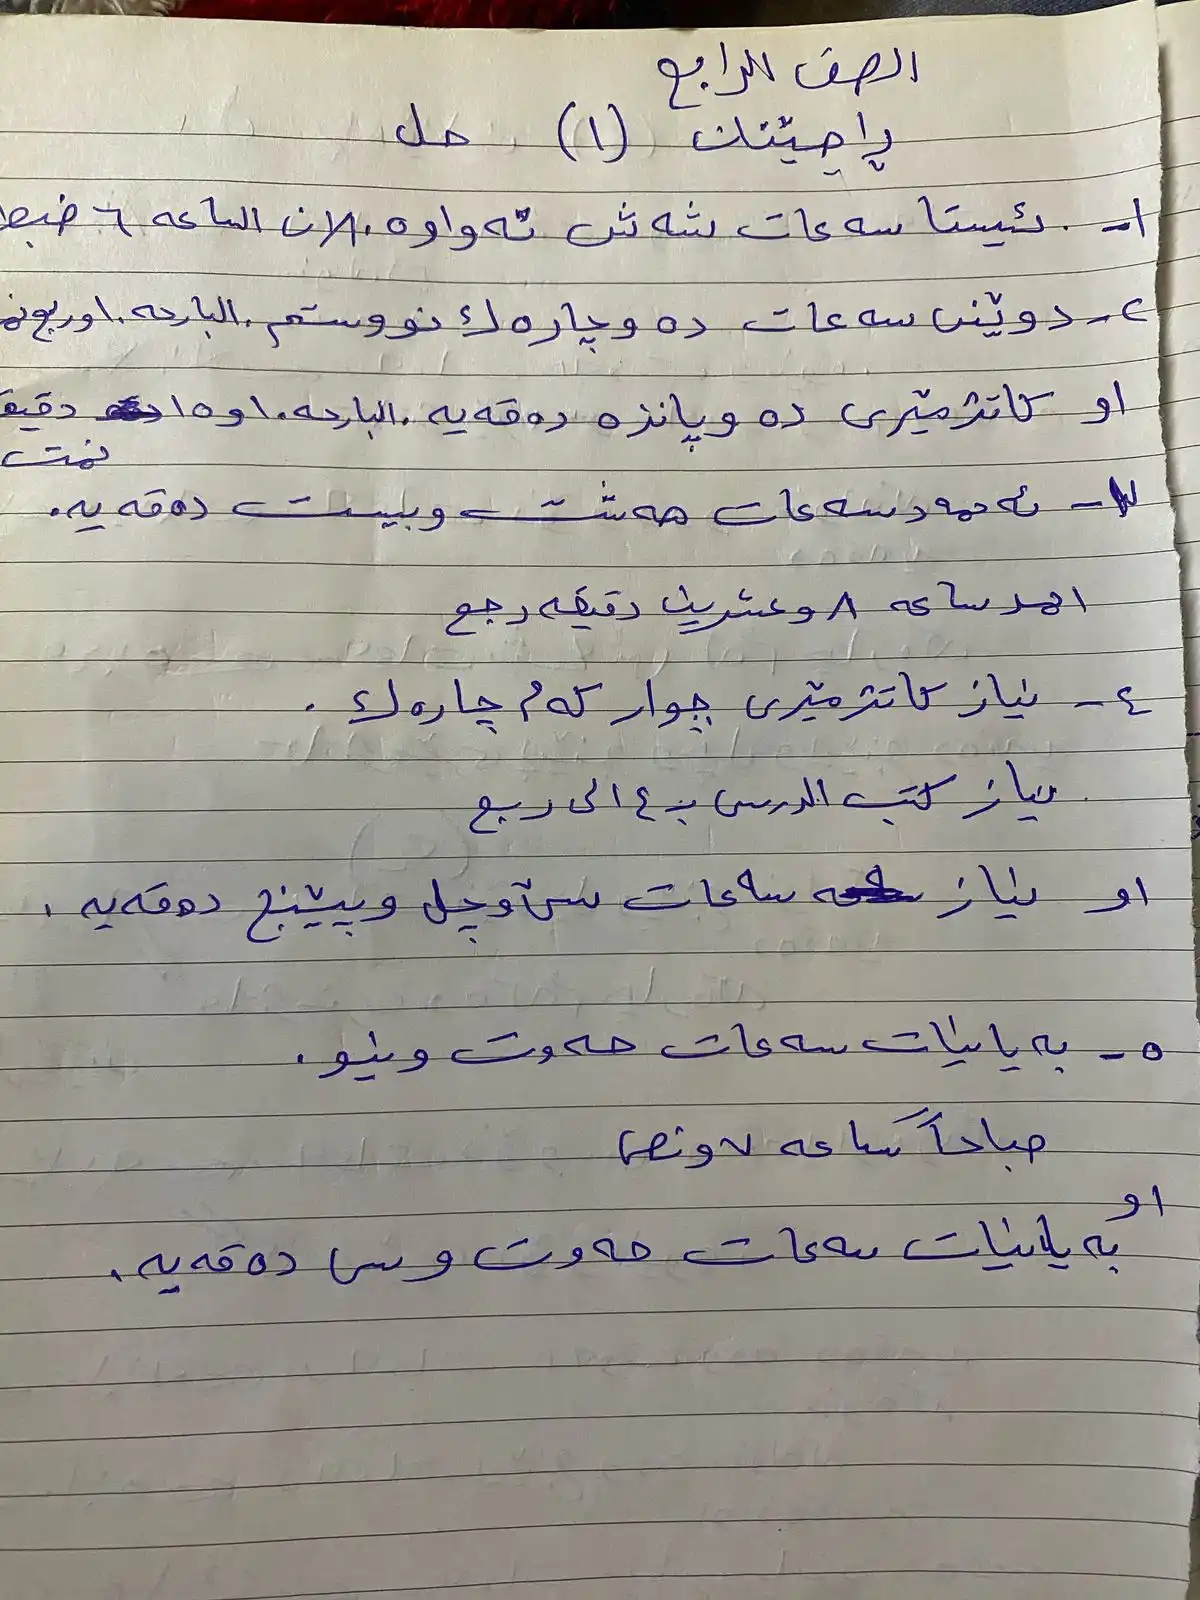 الصف الرابع
ڕاهێنان (١) حل
١- ئێستا سەعات شەش تەواوە. الان الساعه ٦ ضبط
٢- دوێنى سەعات دە و چارەك نووستم. البارحه ١٠ وربع نمـ
او كاتژمێرى دە و پانزە دەقەيە. البارحه ١٠ و ١٥ دقيقـ
نمت
٣- ئەحمەد سەعات هەشت و بيست دەقەيە.
احمد ساعه ٨ وعشرين دقيقه رجع
٤- نياز كاتژمێرى چوار كەم چارەك.
نياز كتب الدرس بـ ٤ الى ربع
او نياز سەعات سێ و چل و پێنج دەقەيە.
٥- بەيانيات سەعات حەوت و نيو.
صباحاً ساعه ٧ ونص
او
بەيانيات سەعات حەوت و سى دەقەيە.